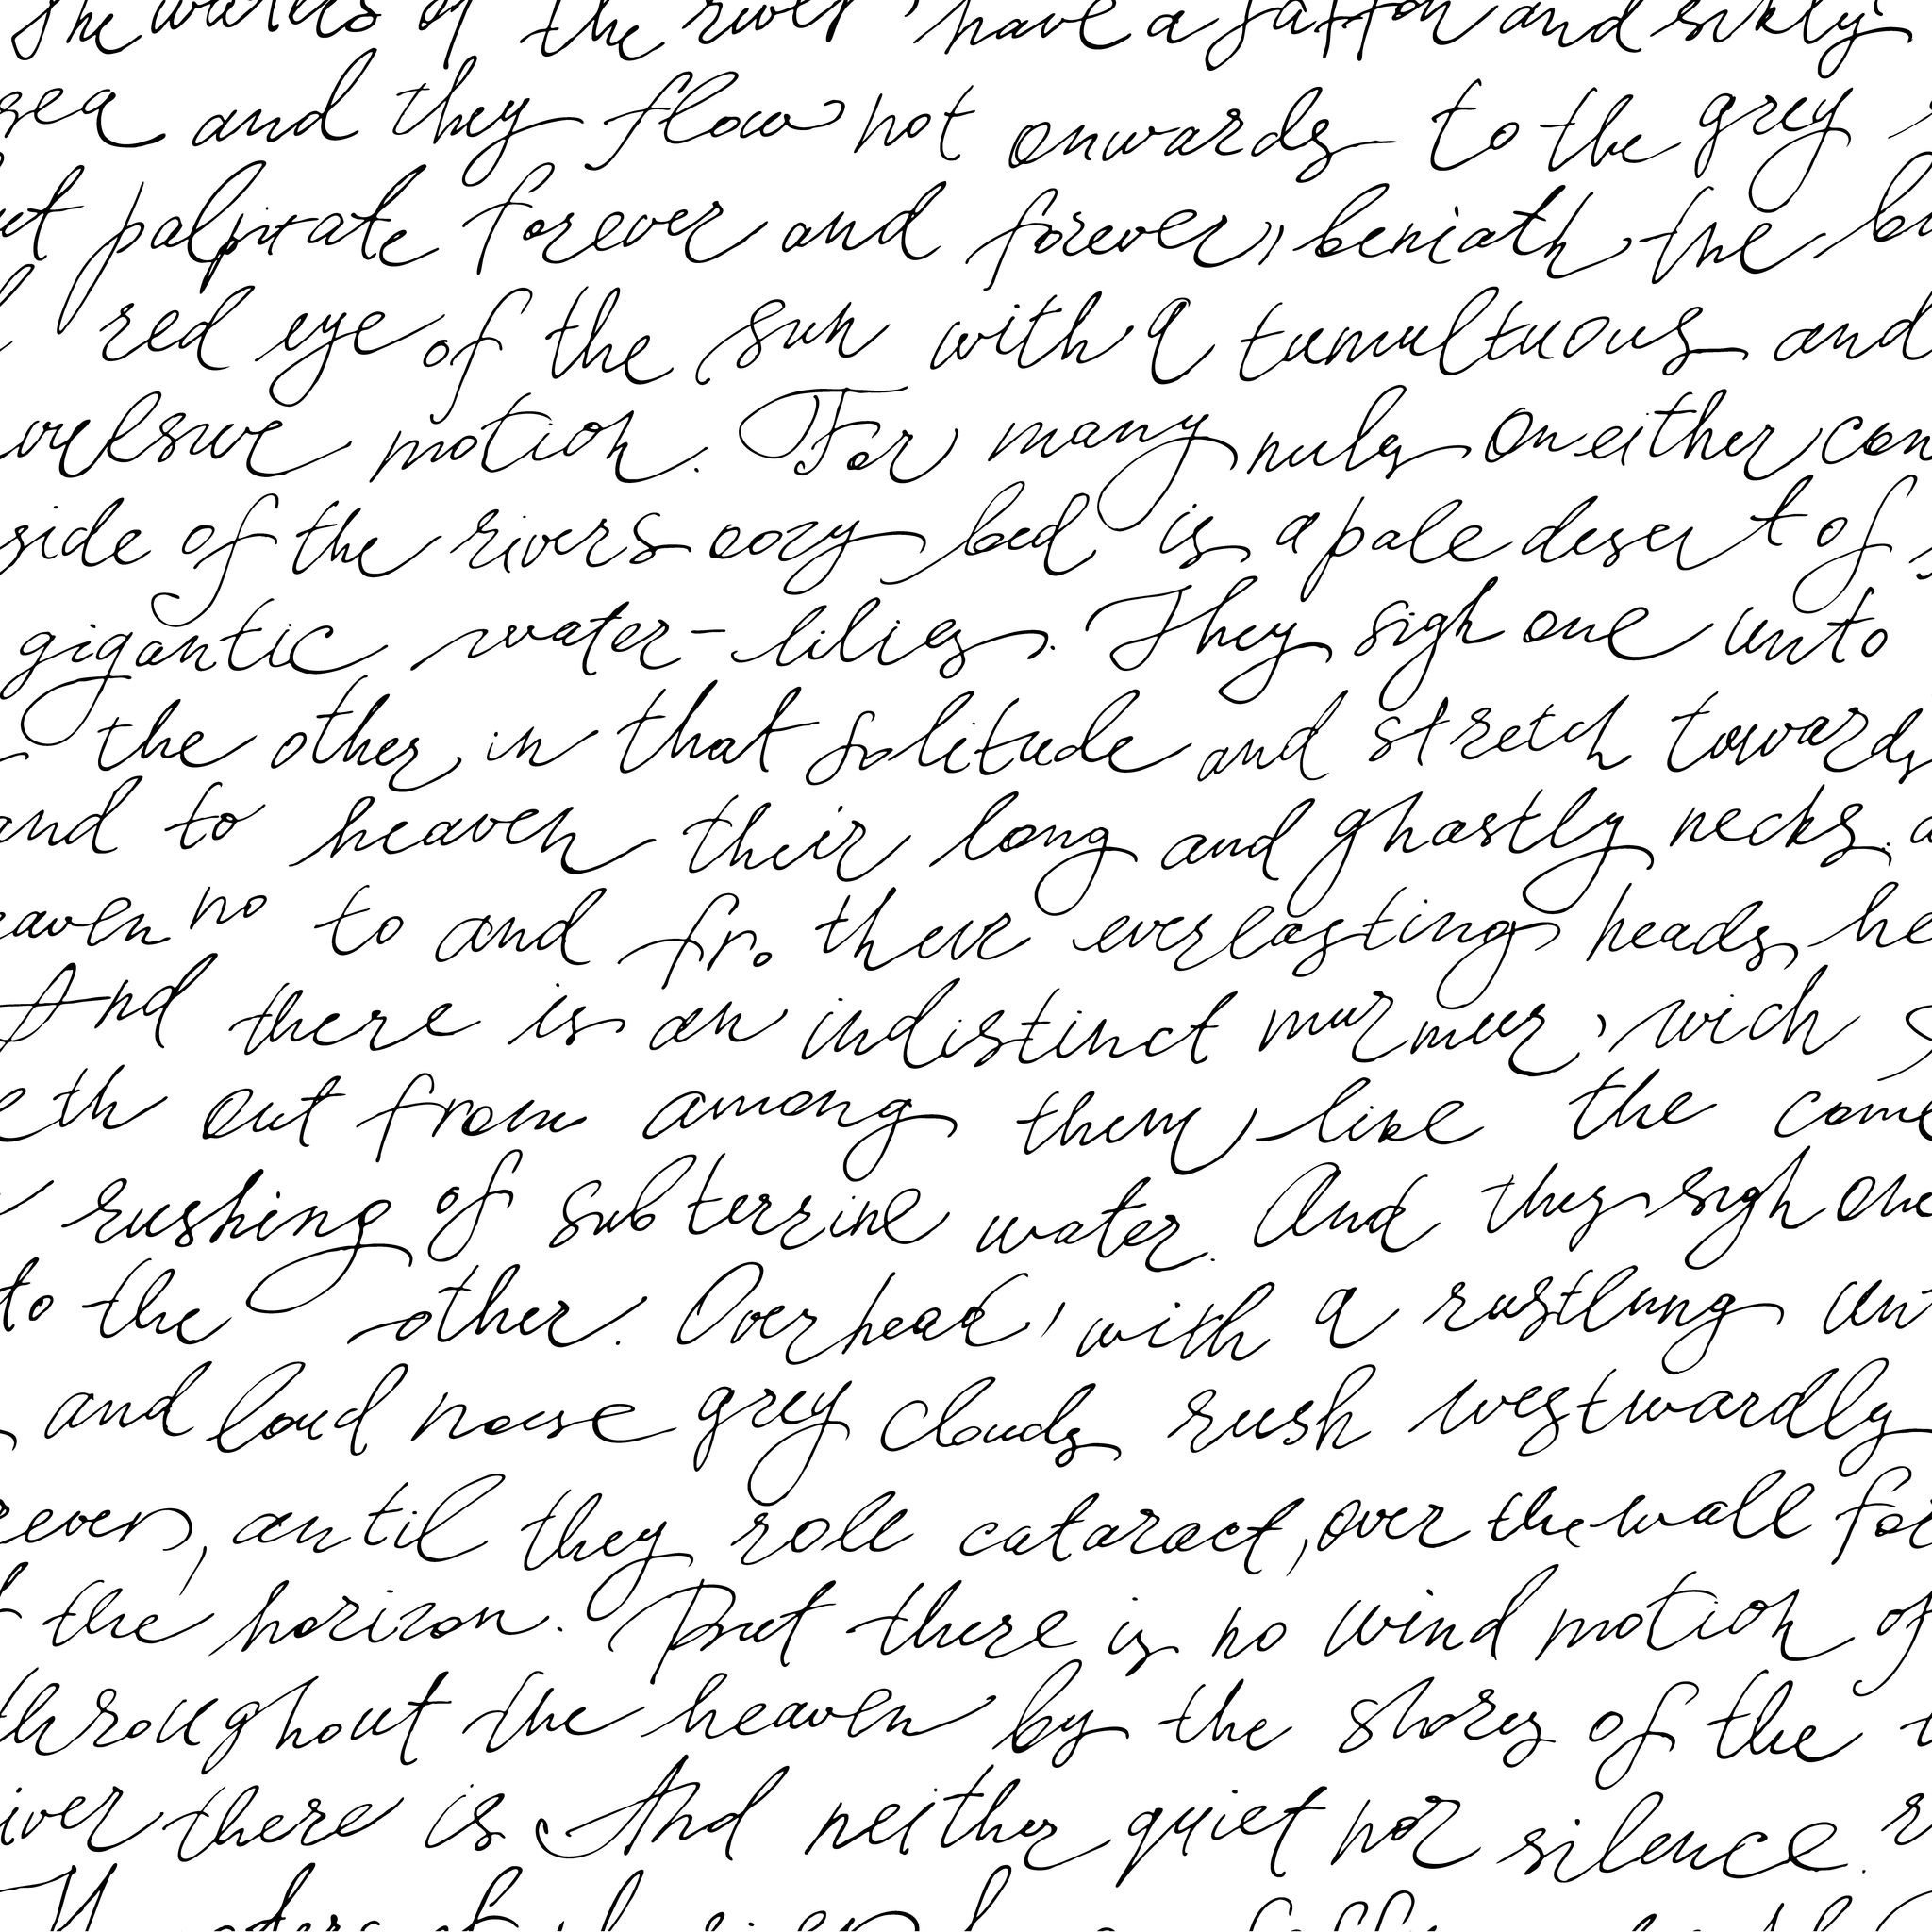 The waters of the river have a saffron and sikly
sea and they flow not onwards to the grey
ut palpitate forever and forever, beniath the bu
red eye of the sun with a tumultuous and
vulsive motion. For many miles on either con
side of the rivers oozy bed is a pale desert of
gigantic water-lilies. They sigh one unto
the other in that solitude and stretch towards
and to heaven their long and ghastly necks. a
eaven no to and fro their everlasting heads he
And there is an indistinct murmur, wich
eth out from among them like the come
rushing of subterrine water. And they sigh one
to the other. Overhead, with a rustlung unt
and loud noise grey clouds rush westwardly
rever, until they roll cataract, over the wall for
the horizon. But there is no wind motion of
throughout the heaven by the shores of the
iver there is And neither quiet nor silence. r